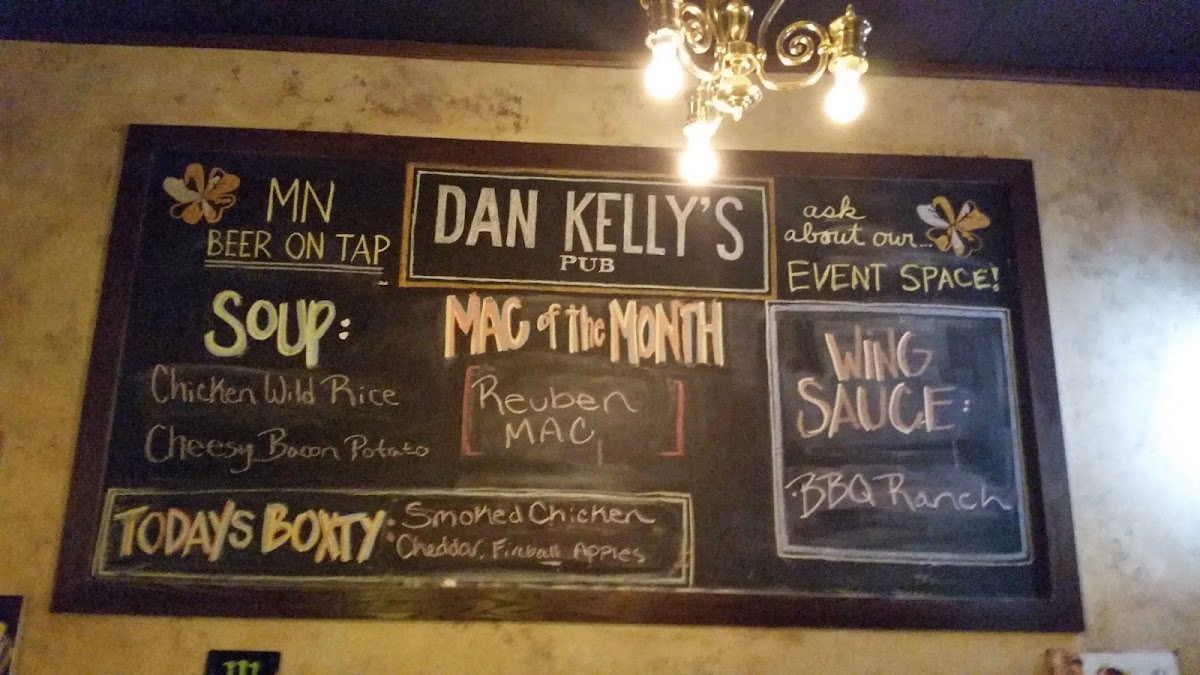 MN
BEER ON TAP
DAN KELLY'S
PUB
ask
about our...
EVENT SPACE!
SOUP:
Chicken Wild Rice
Cheesy Bacon Potato
MAC of the MONTH
[Reuben
MAC]
WING
SAUCE:
·BBQ Ranch
TODAYS BOXTY: Smoked Chicken
Cheddar, Fireball Apples